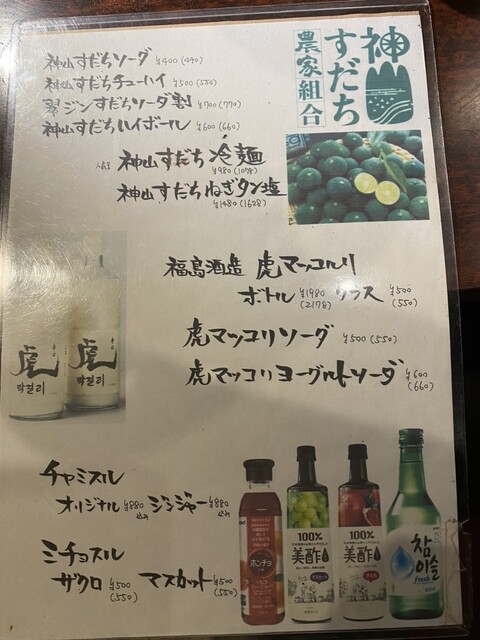 神山すだち
農家組合
神山すだちソーダ ¥400(440)
神山すだちチューハイ ¥500(550)
翠ジンすだちソーダ割 ¥700(770)
神山すだちハイボール ¥600(660)
人気 神山すだち冷麺
¥980(1078)
神山すだちねぎタン塩
¥1480(1628)
福島酒造 虎マッコルリ
ボトル ¥1980 グラス ¥500
(2178) (550)
虎マッコリソーダ ¥500(550)
虎マッコリヨーグルトソーダ ¥600
(660)
虎
막걸리
虎
막걸리
チャミスル
オリジナル ¥880 ジンジャー ¥880
込み 込み
ミチョスル
ザクロ ¥500 マスカット ¥500
(550) (550)
ホンチョ
100%
美酢
マスカット
100%
美酢
ざくろ
참이슬
fresh